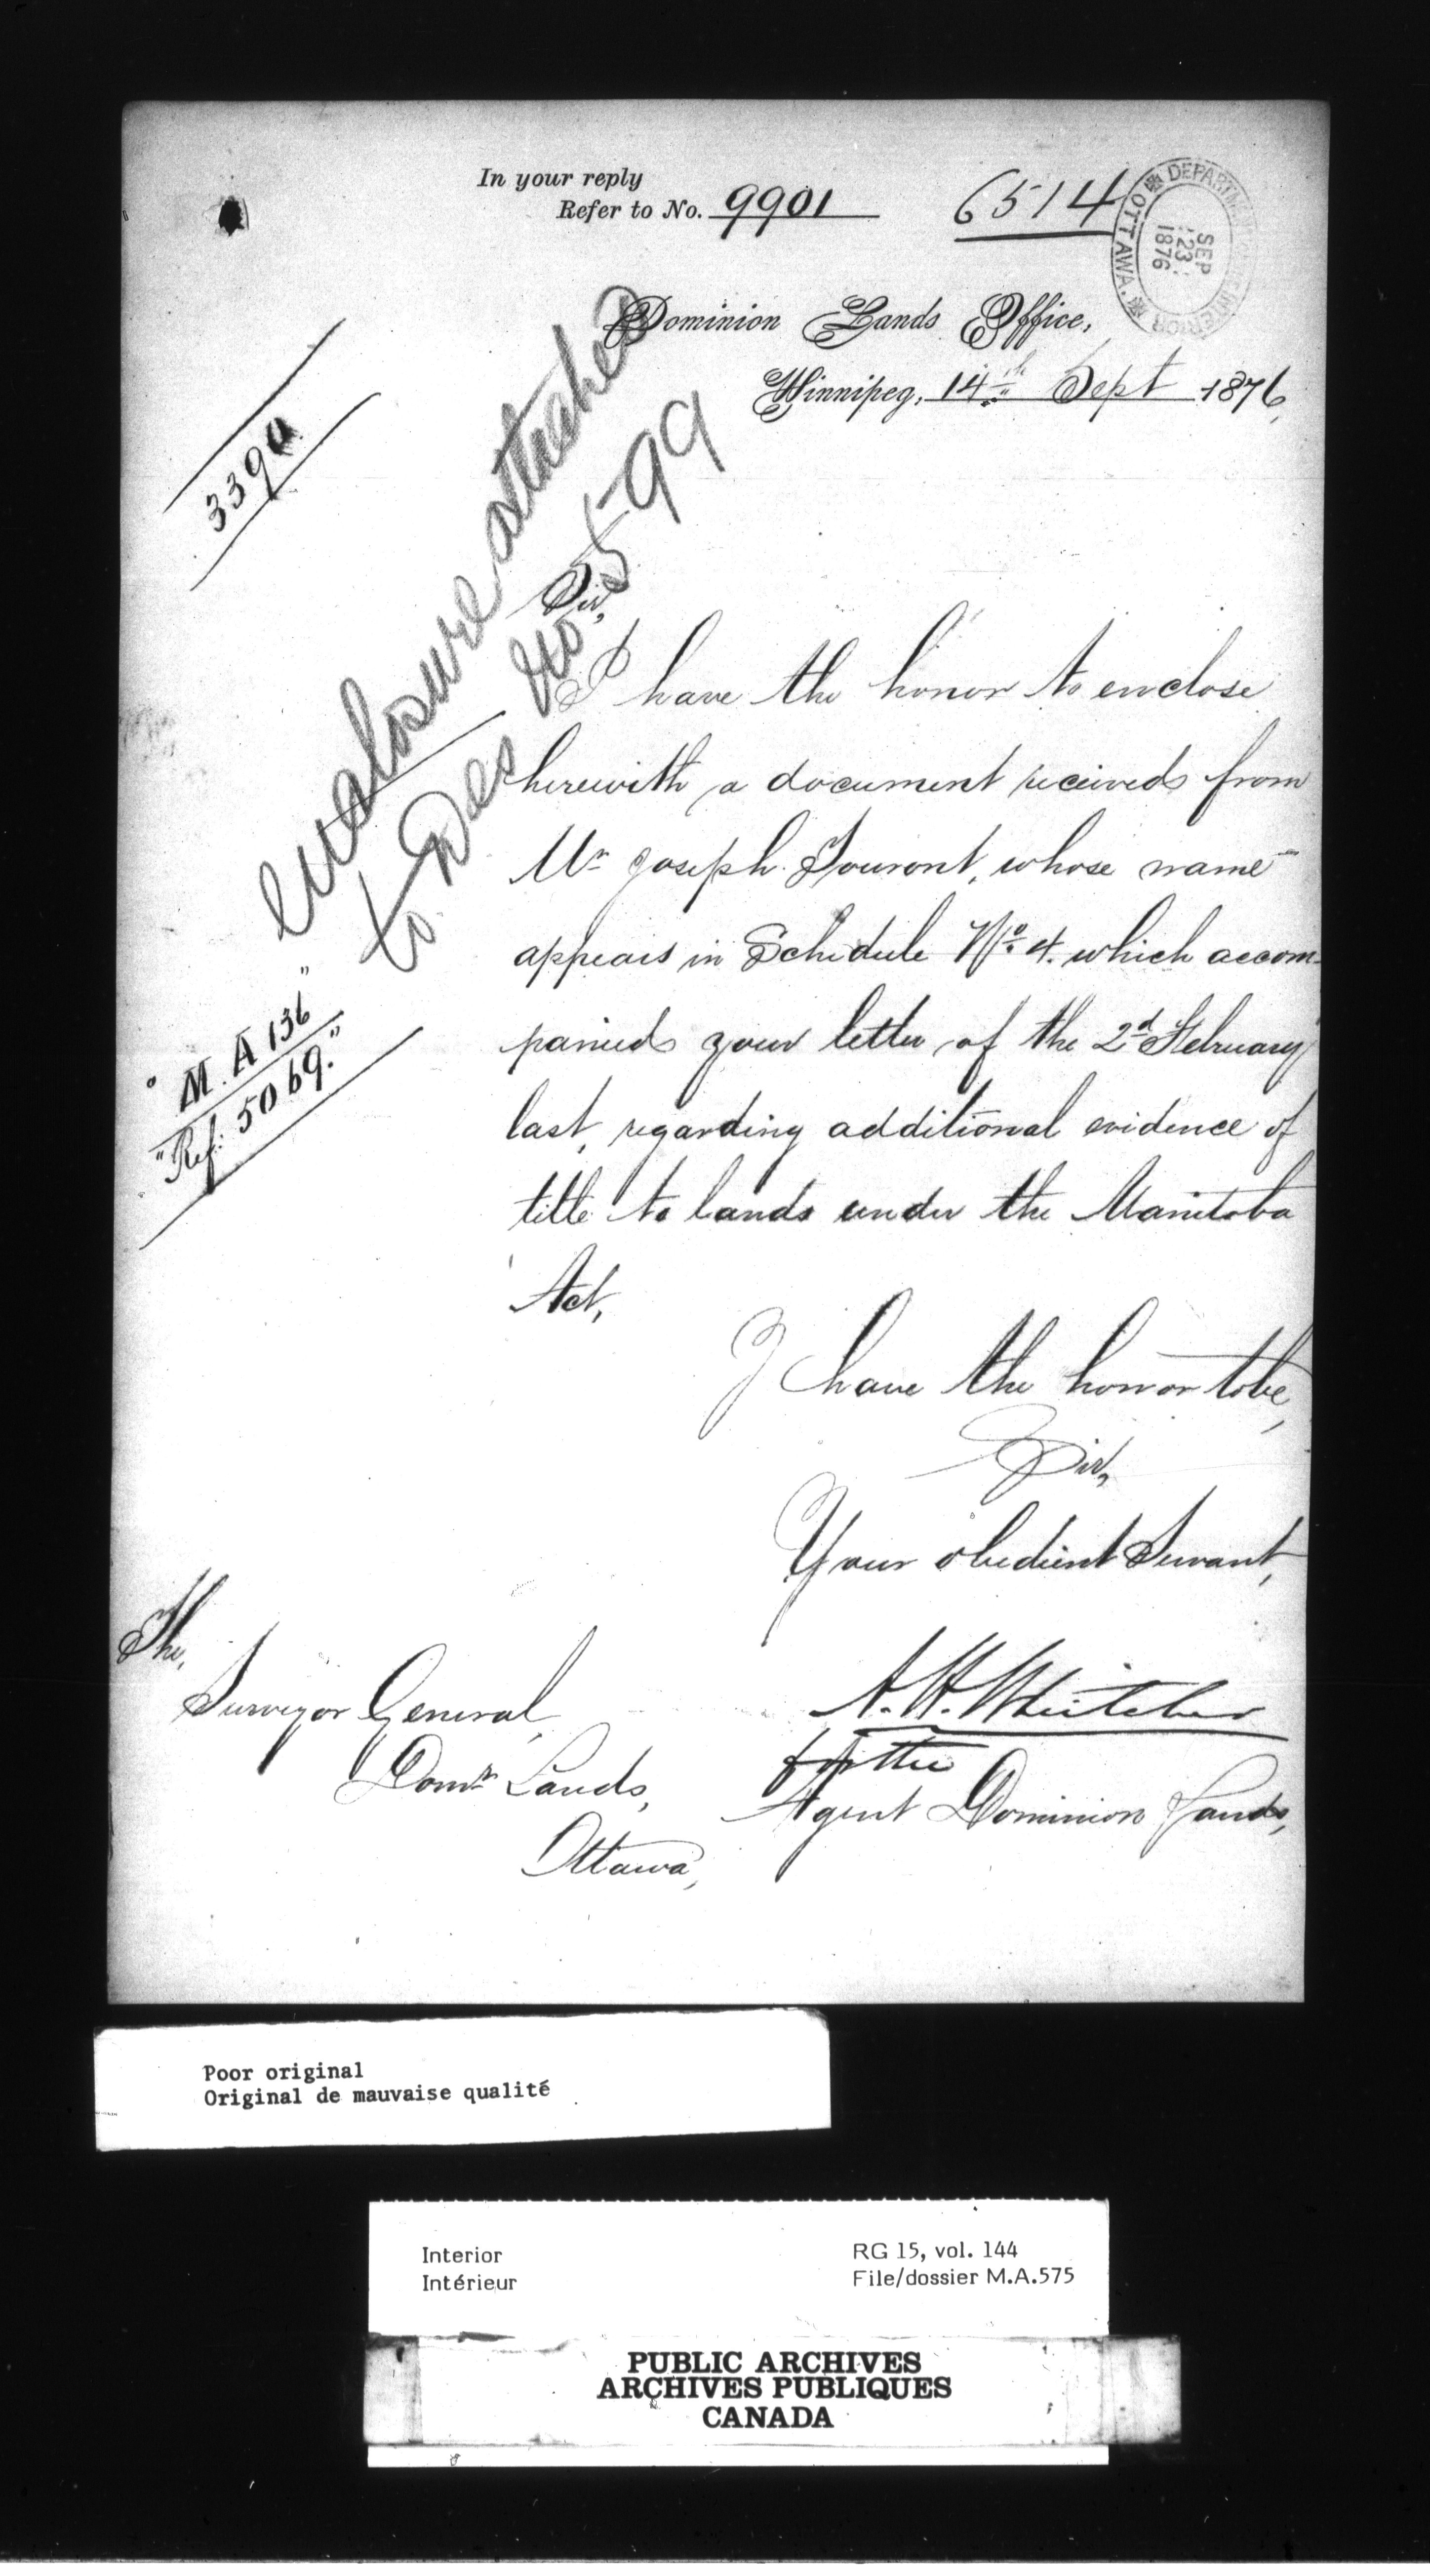 In your reply
Refer to No. 9901
6514
DEPARTMENT OF INTERIOR OTTAWA.
SEP
23
1876
Dominion Lands Office,
Winnipeg, 14th Sept 1876,
enclosure attached
to Des No 599
Sir,
I have the honor to enclose
herewith a document received from
Mr Joseph Touront, whose name
appears in Schedule No. 4. which accom-
panied your letter of the 2d February
last, regarding additional evidence of
title to lands under the Manitoba
Act,
"M. A 136"
"Ref: 5069."
I have the honor to be,
Sir,
Your obedient Servant,
A. H. Whitcher
for the
Agent Dominion Lands,
The,
Surveyor General,
Domn Lands,
Ottawa,
Poor original
Original de mauvaise qualité
Interior
Intérieur
RG 15, vol. 144
File/dossier M.A.575
PUBLIC ARCHIVES
ARCHIVES PUBLIQUES
CANADA